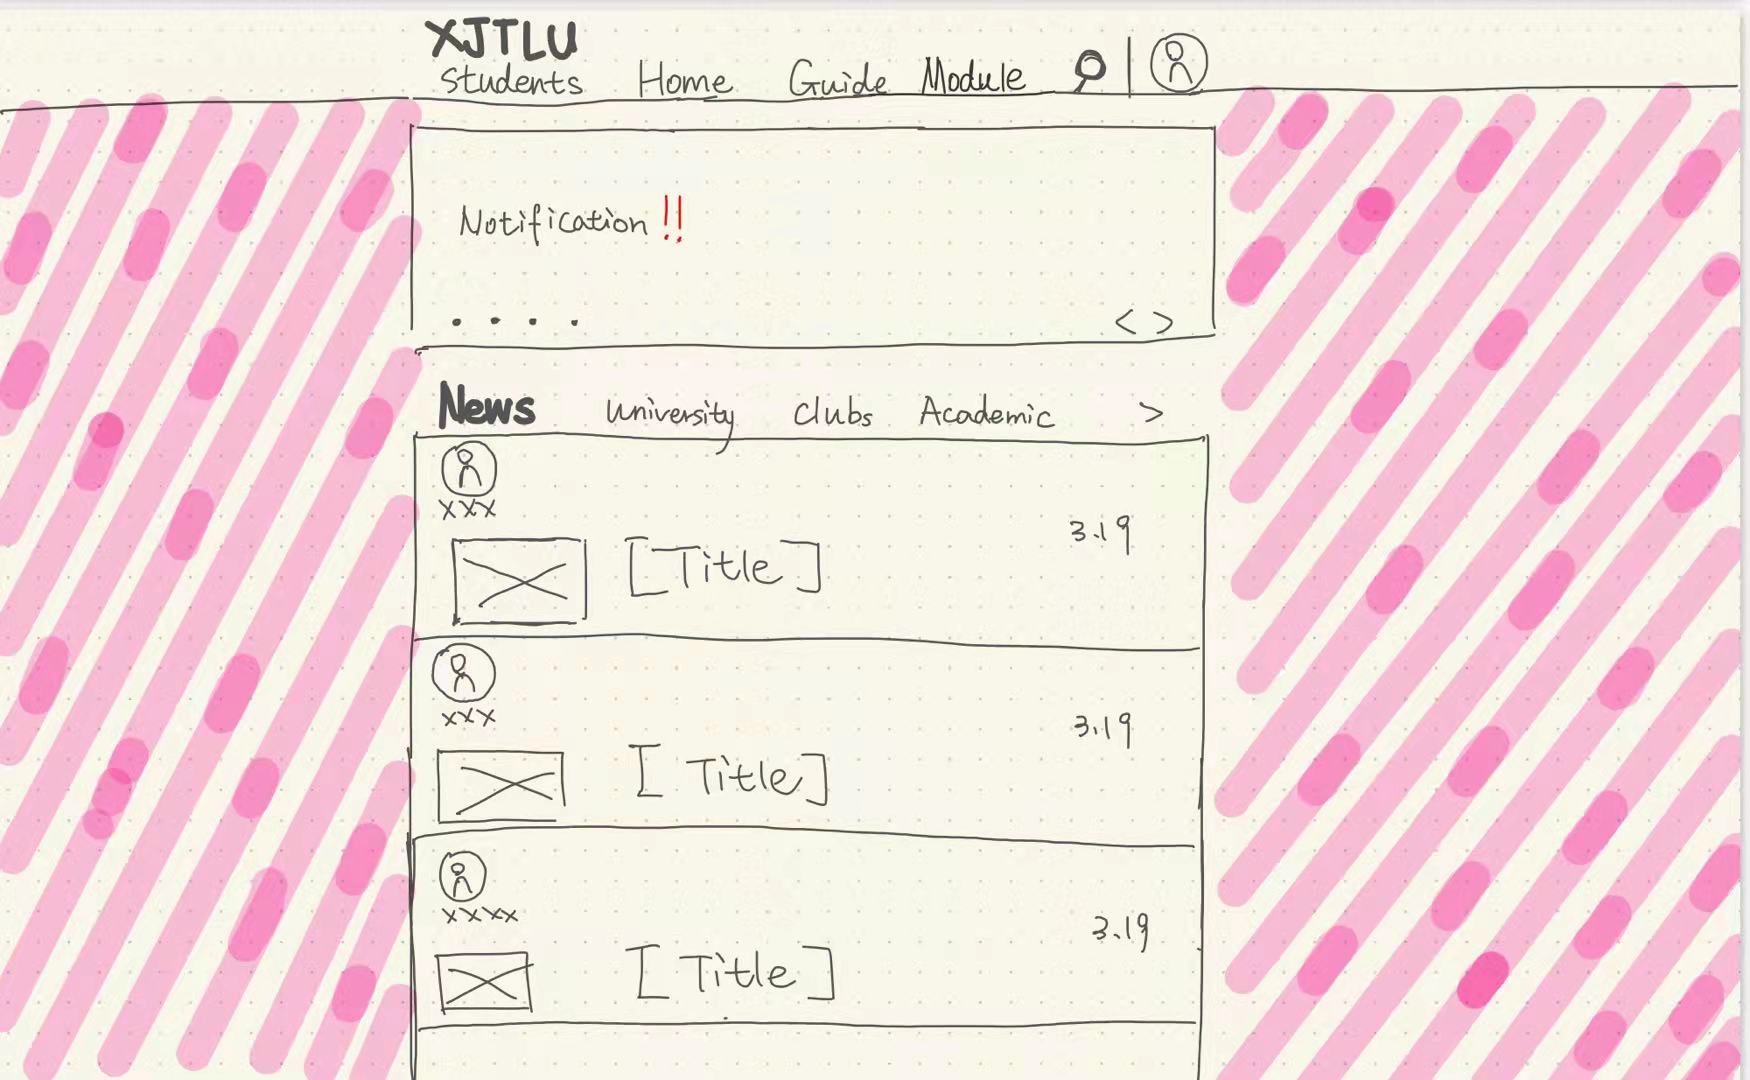 XJTLU
Students Home Guide Module
Notification !!
< >
News University Clubs Academic >
xxx
3.19
[Title]
xxx
3.19
[Title]
xxxx
3.19
[Title]